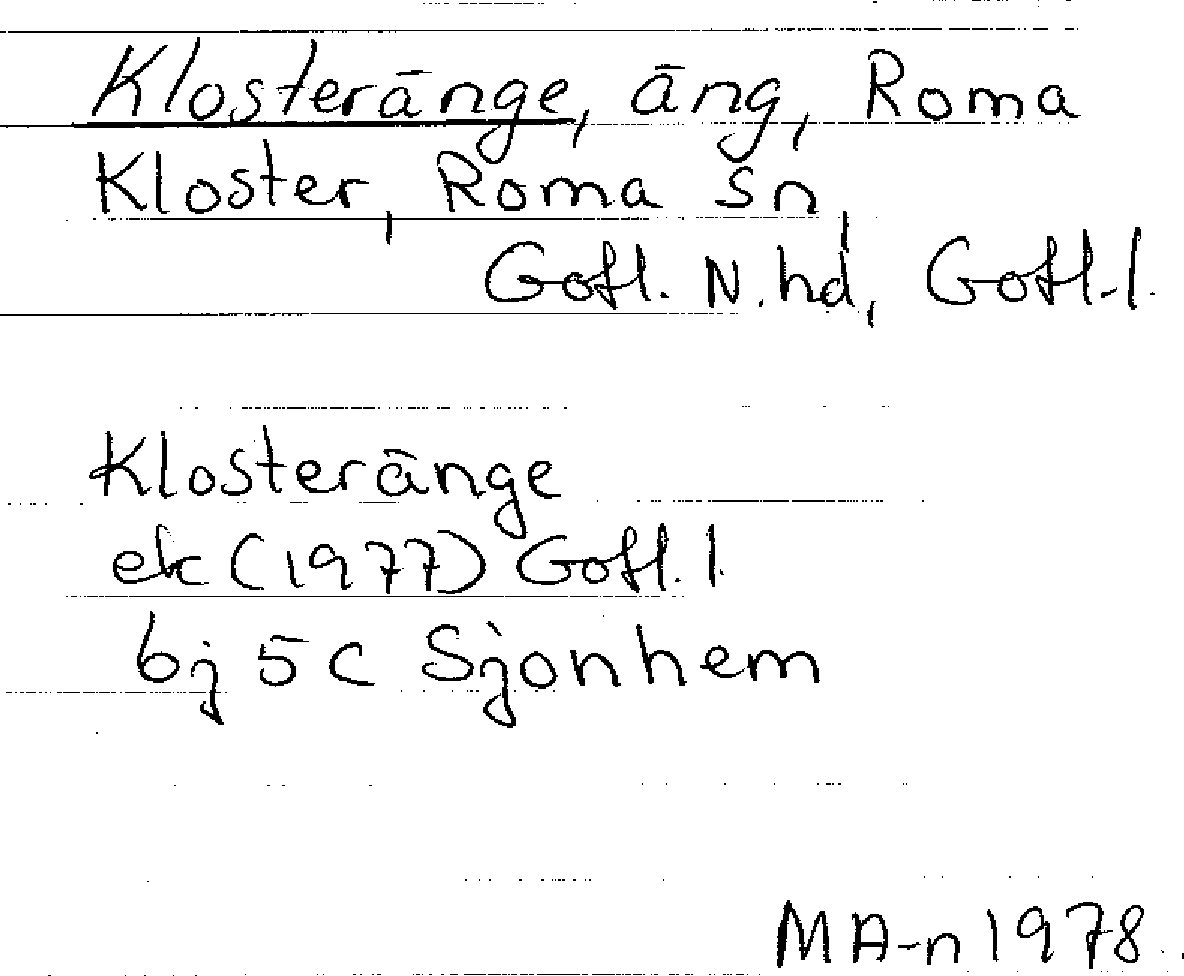 Klosteränge, äng, Roma
Kloster, Roma sn,
Gotl. N. hd, Gotl. l.
Klosteränge
ek (1977) Gotl. l.
bj 5 C Sjonhem
MA-n 1978.